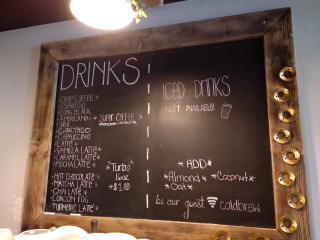 DRINKS
DRIP COFFEE
ESPRESSO
LONG BLACK
AMERICANO
CORTADO
CAPPUCCINO
LATTE
VANILLA LATTE
CARAMEL LATTE
MOCHA LATTE
HOT CHOCOLATE
MATCHA LATTE
CHAI LATTE
LONDON FOG
TURMERIC LATTE
SUPER COFFEE
*Turbo*
16oz
+$1.00
ICED DRINKS
NOT AVAILABLE!
*ADD*
*Almond* *Coconut*
*Oat*
be our guest coldbrew